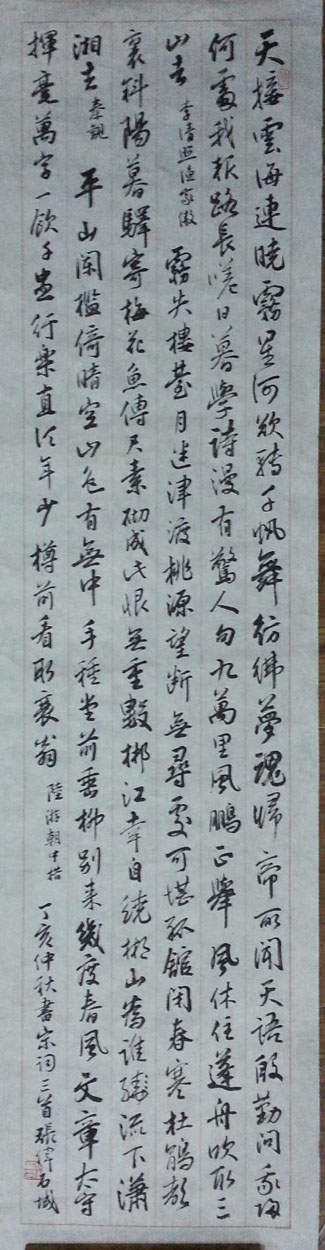 天接雲海連曉霧星河欲轉千帆舞彷彿夢魂歸帝所聞天語殷勤問我歸
何處我報路長嗟日暮學詩漫有驚人句九萬里風鵬正舉風休住蓬舟吹取三
山去 李清照漁家傲 霧失樓臺月迷津渡桃源望斷無尋處可堪孤館閉春寒杜鵑聲
裏斜陽暮驛寄梅花魚傳尺素砌成此恨無重數郴江幸自繞郴山為誰流下瀟
湘去 秦觀 平山闌檻倚晴空山色有無中手種堂前垂柳別來幾度春風文章太守
揮毫萬字一飲千盅行樂直須年少樽前看取衰翁 陸游朝中措 丁亥仲秋書宋詞三首張石城